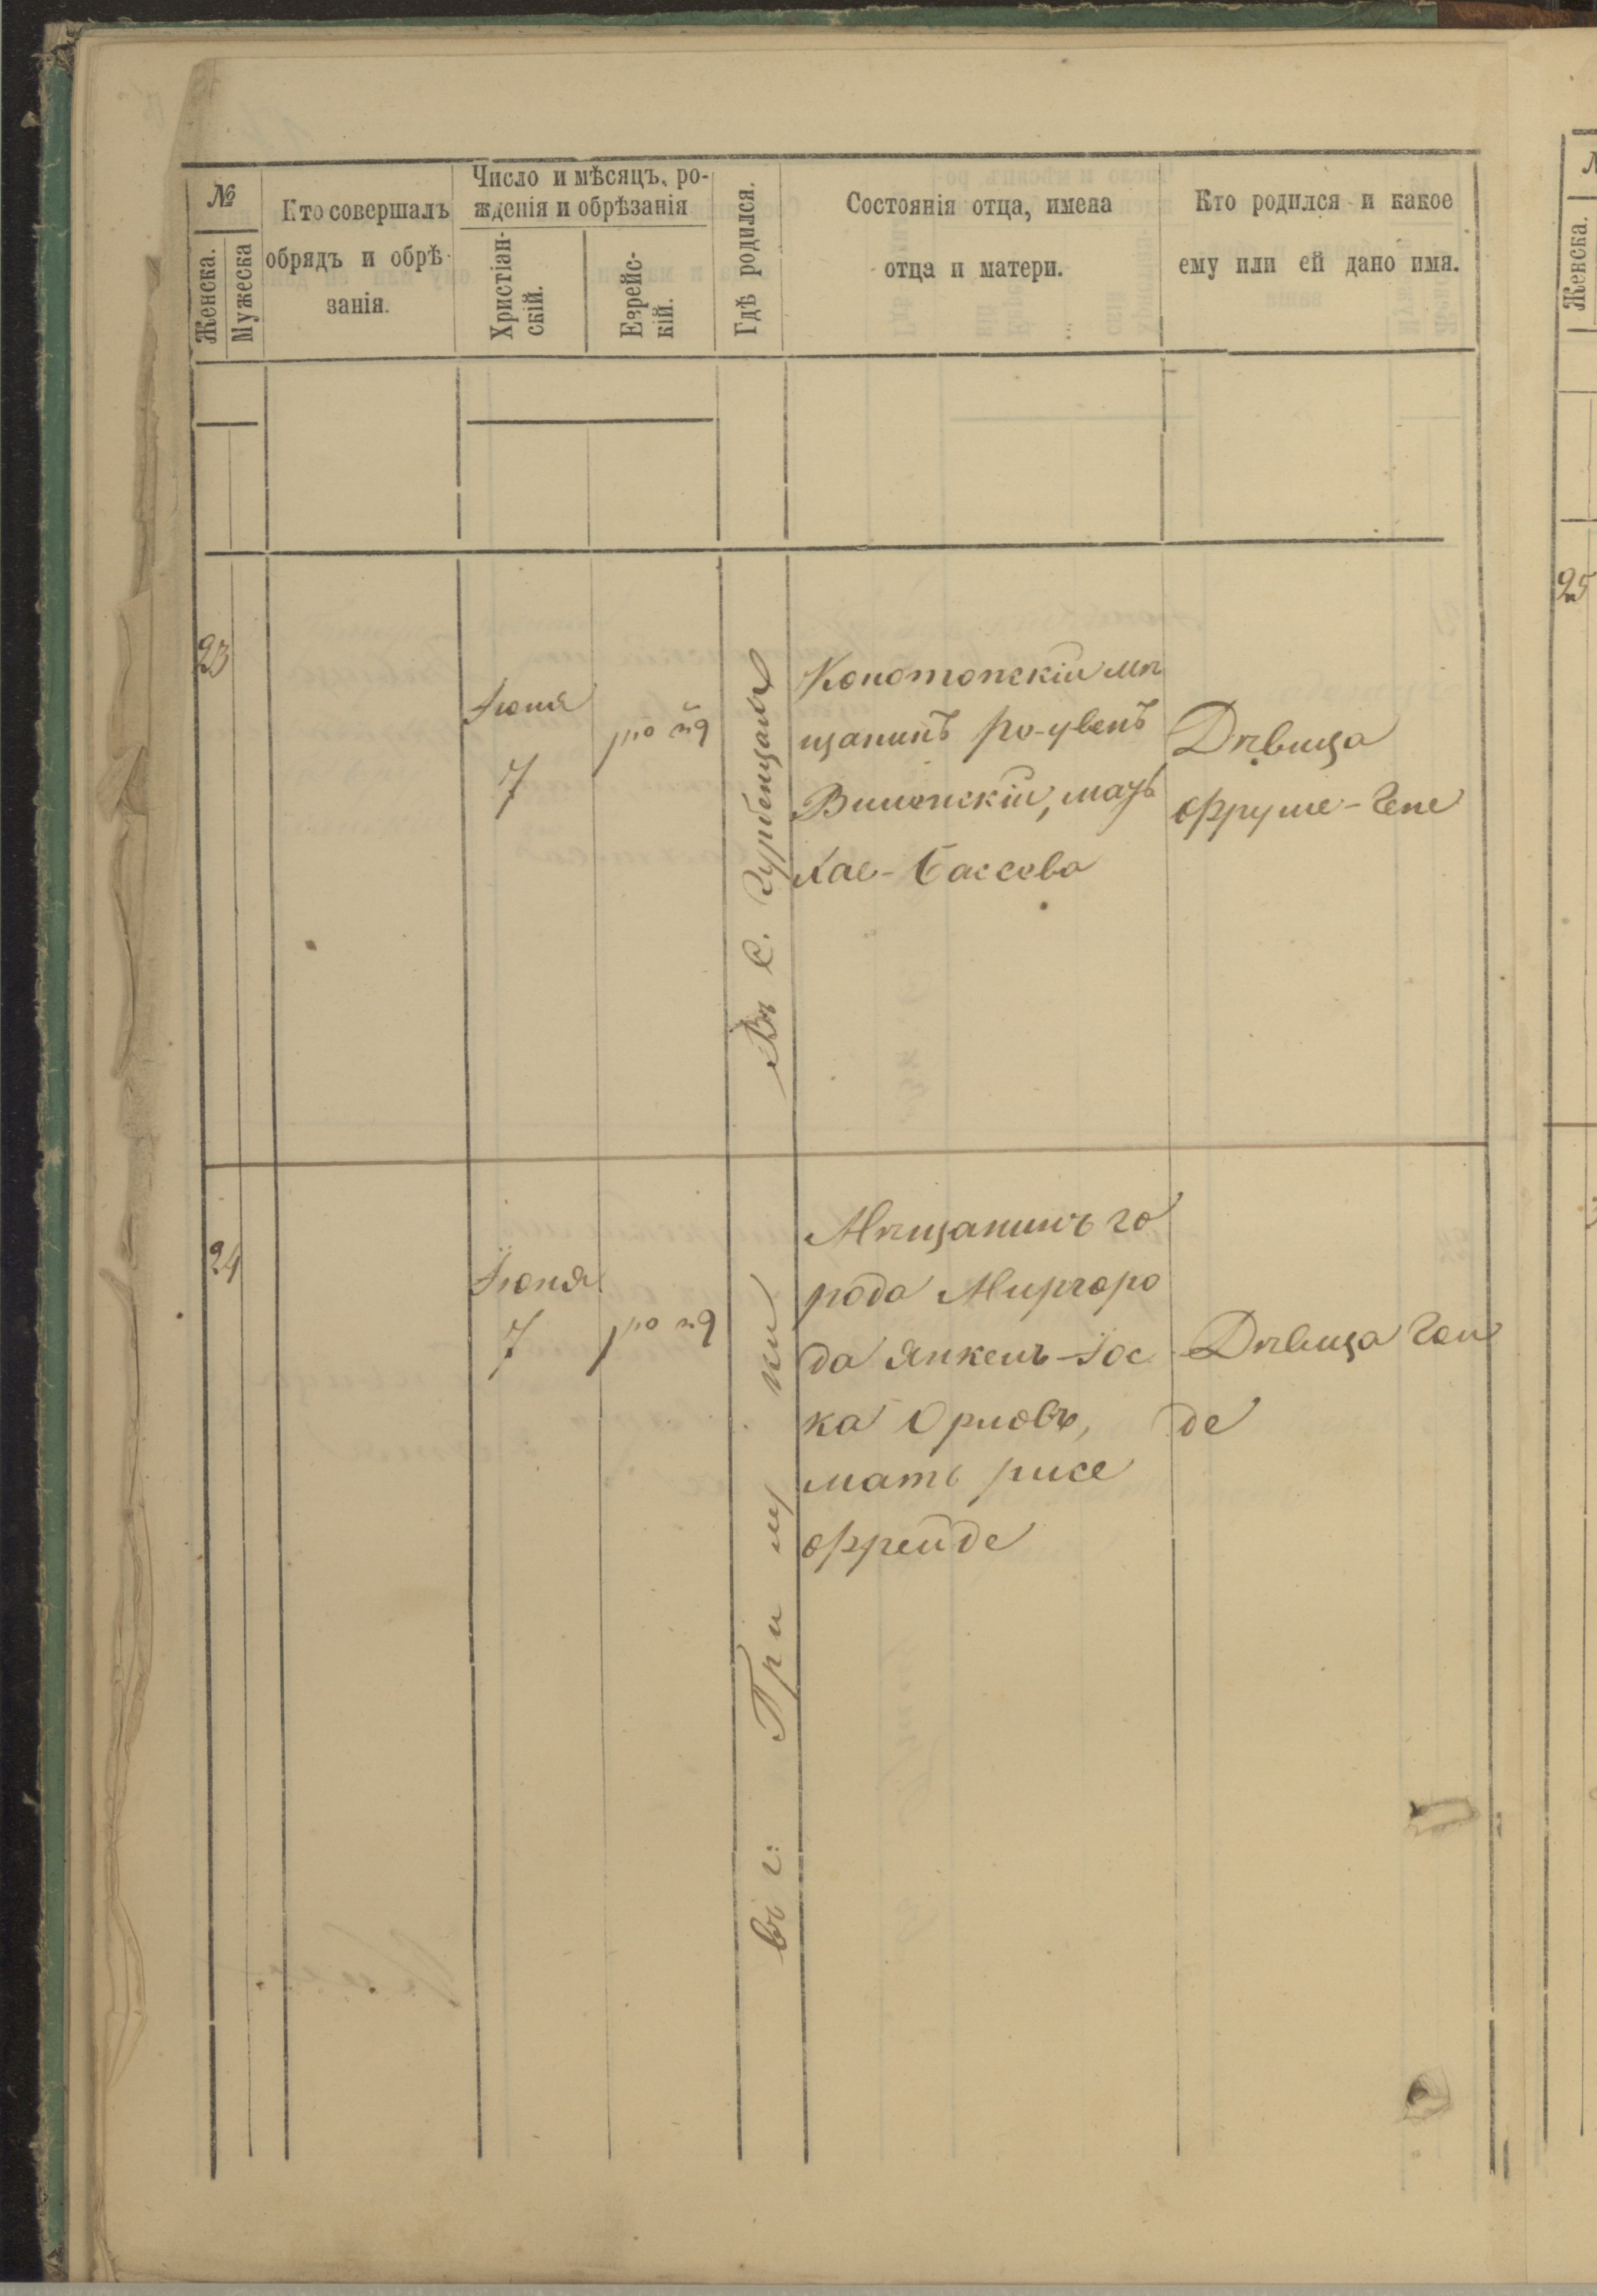 №
Женска.
Мужеска
Кто совершалъ
обрядъ и обрѣ-
занія.
Число и мѣсяцъ, ро-
жденія и обрѣзанія
Христіан-
скій.
Еврейс-
кій.
Гдѣ родился.
Состоянія отца, имена
отца и матери.
Кто родился и какое
ему или ей дано имя.
23
Іюня
7
Въ с.
Конотопскій мѣ
щанинъ Ро-увенъ
Виленскій, мать
Хае-Бассева
Дѣвица
Фруме-Гене
24
Іюня
7
въ г: Прилуки
Мѣщанинъ го
рода Миргоро
да Янкель-Іос
ка Орловъ,
мать Рисе
Фрейде
Дѣвица Гол
де
Женска.
25